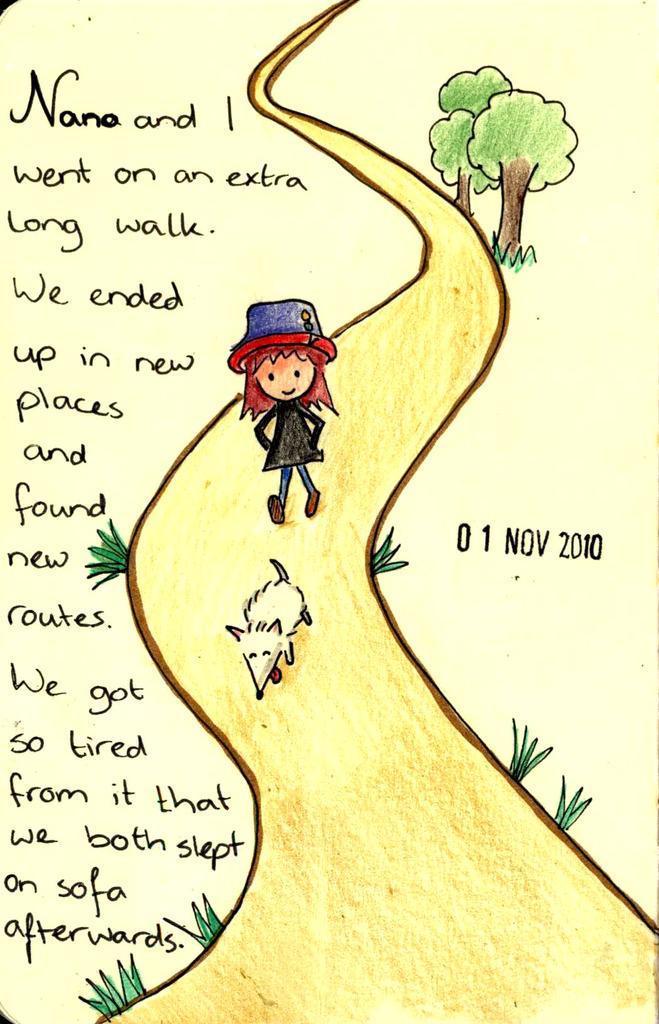 Nana and I
went on an extra
long walk.
We ended
up in new
places
and
found
new
routes.
We got
so tired
from it that
we both slept
on sofa
afterwards.
01 NOV 2010